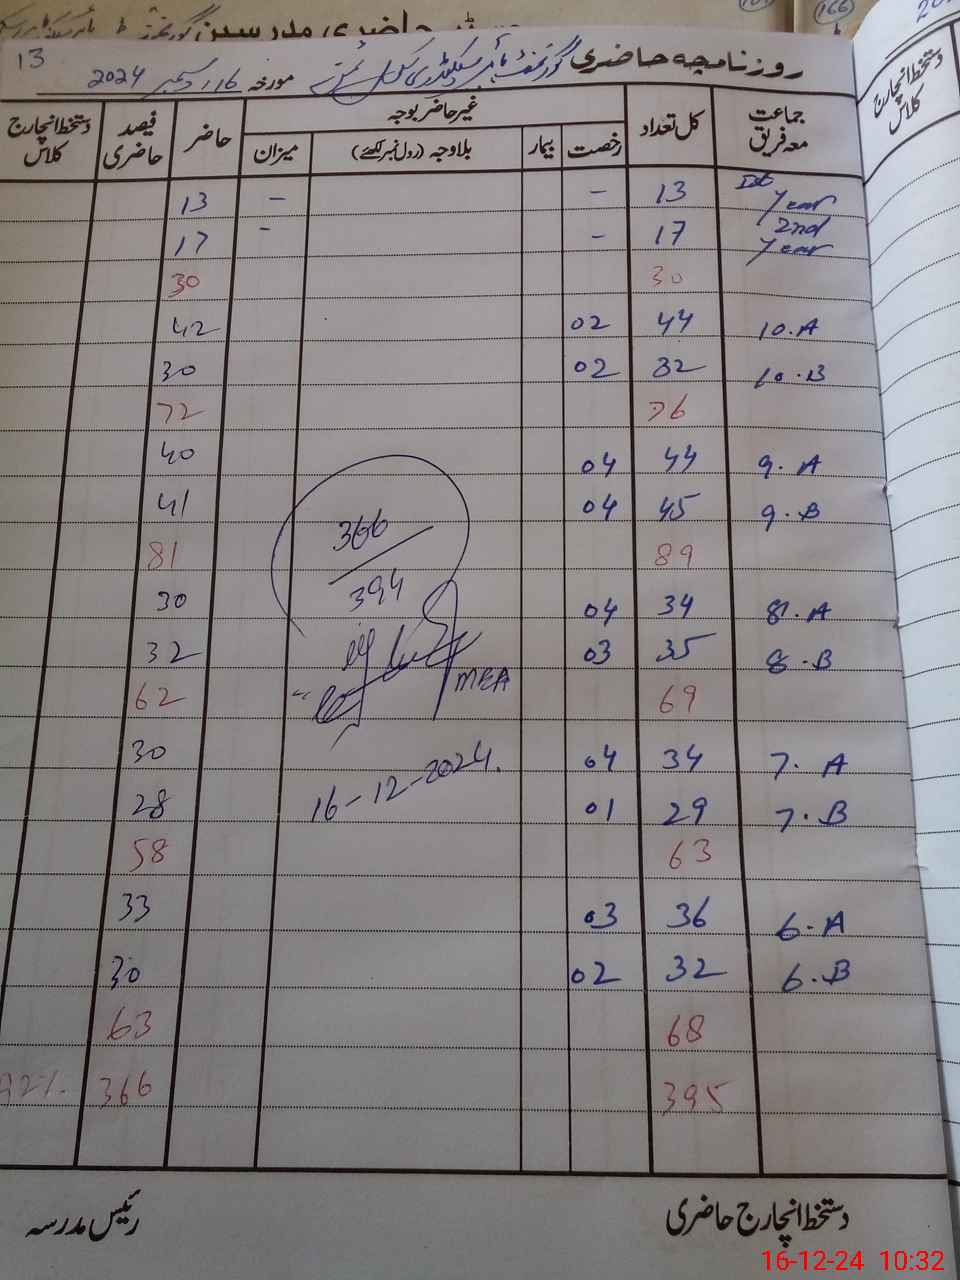 13
روزنامچہ حاضری گورنمنٹ ہائر سیکنڈری سکول
مورخہ 16 دسمبر 2024
جماعت معہ فریق کل تعداد غیر حاضر بوجہ حاضر فیصد حاضری دستخط انچارج کلاس
رخصت بیمار بلاوجہ (رول نمبر لکھئے) میزان
Ist year 13 – – 13
2nd year 17 – – 17
30 30
10.A 44 02 42
10.B 32 02 30
76 72
9.A 44 04 40
9.B 45 04 41
89 81
8.A 34 04 30
8.B 35 03 32
69 62
7.A 34 04 30
7.B 29 01 28
63 58
6.A 36 03 33
6.B 32 02 30
68 63
395 366 92%
366
394
MEA
16-12-2024.
دستخط انچارج حاضری رئیس مدرسہ
دستخط انچارج کلاس
166
16-12-24 10:32